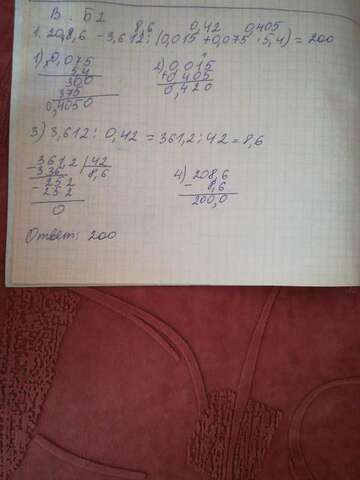 В. Б2
8,6 0,42 0,405
1. 20,8,6 - 3,612 : (0,015 + 0,075 · 5,4) = 200
1) × 0,075
5,4
300
375
0,4050
2) 0,015
+ 0,405
0,420
3) 3,612 : 0,42 = 361,2 : 42 = 8,6
- 361,2 | 42
336 | 8,6
- 252
252
0
4) 208,6
- 8,6
200,0
Ответ: 200